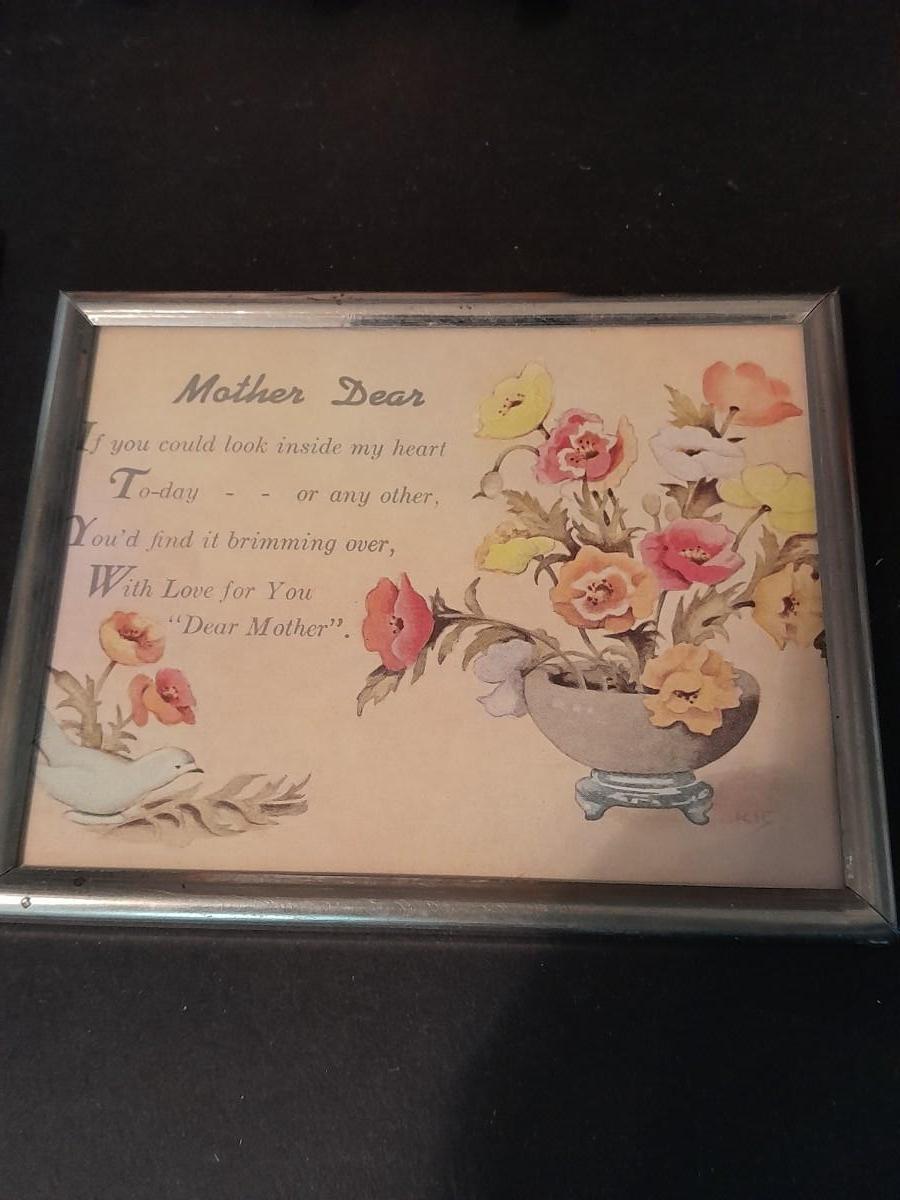 Mother Dear
If you could look inside my heart
To-day - - or any other,
You'd find it brimming over,
With Love for You
"Dear Mother".